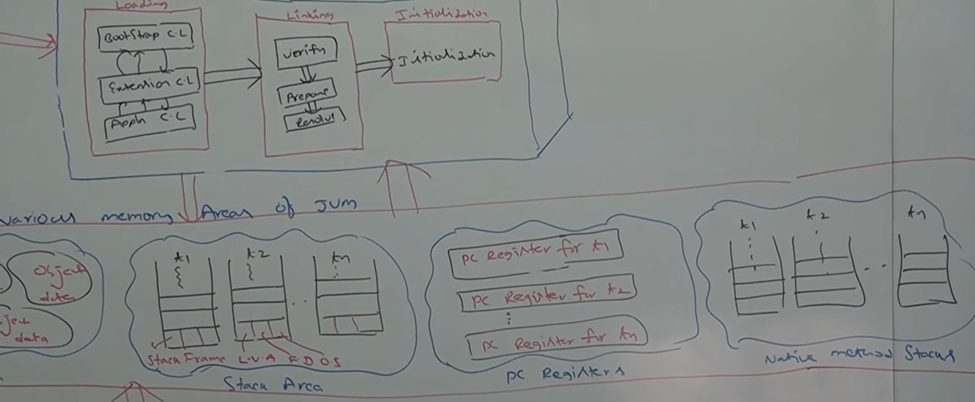 Loading
Linking
Initialization
BootStrap C.L
Extention C.L
Appln C.L
Verify
Prepare
Resolve
Initialization
Various memory Areas of JVM
Object
data
ject
data
t1
t2
tn
Stack Frame L.V.A F.D O.S
Stack Area
PC Register for t1
PC Register for t2
PC Register for tn
PC Registers
t1
t2
tn
Native method Stacks